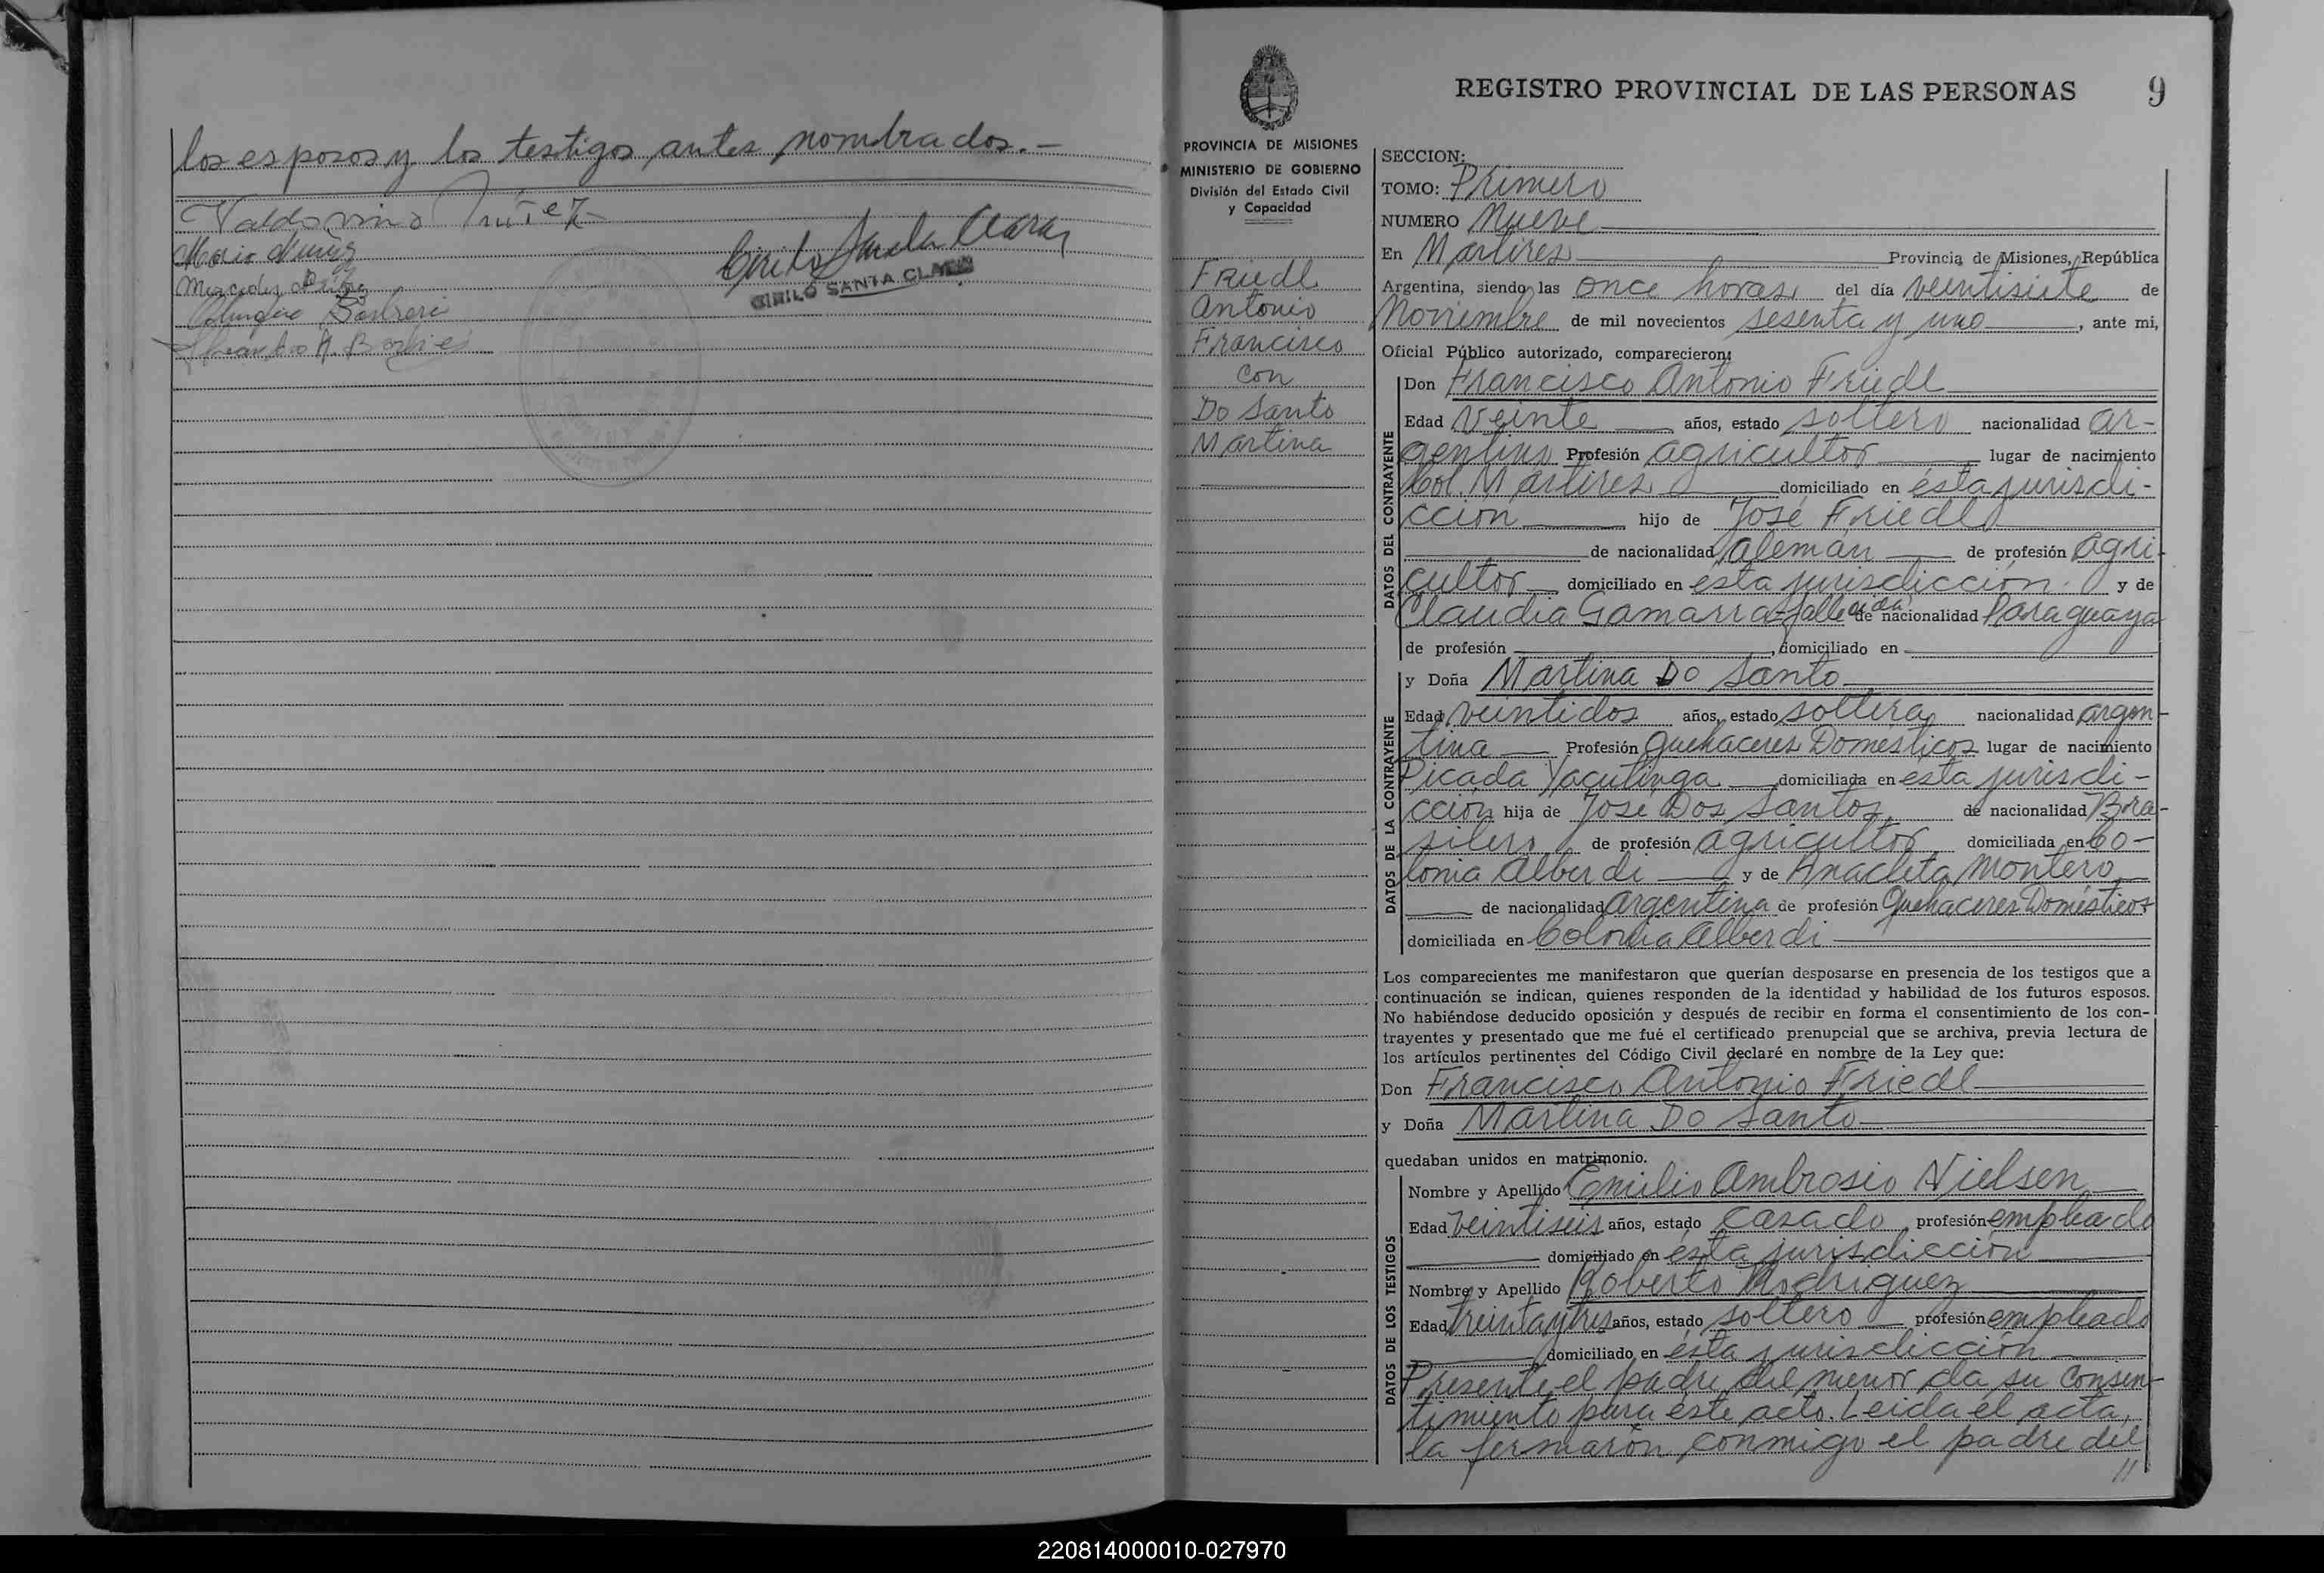 los esposos y los testigos antes nombrados.-
Valdovino
Mario
Mercedes
Cirilo Santa Clara
CIRILO SANTA CLARA
PROVINCIA DE MISIONES
MINISTERIO DE GOBIERNO
División del Estado Civil
y Capacidad
Friedl
Antonio
Francisco
con
Do Santo
Martina
REGISTRO PROVINCIAL DE LAS PERSONAS 9
SECCION:
TOMO: Primero
NUMERO Nueve
En Mártires Provincia de Misiones, República
Argentina, siendo las once horas del día veintisiete de
Noviembre de mil novecientos sesenta y uno, ante mi,
Oficial Público autorizado, comparecieron:
DATOS DEL CONTRAYENTE
Don Francisco Antonio Friedl
Edad veinte años, estado soltero nacionalidad ar-
gentino Profesión agricultor lugar de nacimiento
Col. Mártires domiciliado en ésta jurisdi-
cción hijo de José Friedl
de nacionalidad alemán de profesión agri-
cultor domiciliado en ésta jurisdicción. y de
Claudia Gamarra-fallecida de nacionalidad Paraguaya
de profesión , domiciliado en
DATOS DE LA CONTRAYENTE
y Doña Martina Do Santo
Edad veintidos años, estado soltera nacionalidad argen-
tina Profesión Quehaceres Domesticos lugar de nacimiento
Picada Yacutinga domiciliada en ésta jurisdi-
cción hija de José Dos Santos de nacionalidad Bra-
silero de profesión agricultor domiciliada en Co-
lonia Alberdi y de Anacleta Montero
de nacionalidad argentina de profesión Quehaceres Domésticos
domiciliada en Colonia Alberdi
Los comparecientes me manifestaron que querían desposarse en presencia de los testigos que a
continuación se indican, quienes responden de la identidad y habilidad de los futuros esposos.
No habiéndose deducido oposición y después de recibir en forma el consentimiento de los con-
trayentes y presentado que me fué el certificado prenupcial que se archiva, previa lectura de
los artículos pertinentes del Código Civil declaré en nombre de la Ley que:
Don Francisco Antonio Friedl
y Doña Martina Do Santo
quedaban unidos en matrimonio.
DATOS DE LOS TESTIGOS
Nombre y Apellido Emilio Ambrosio Nielsen
Edad veintiseis años, estado casado profesión empleado
domiciliado en ésta jurisdicción
Nombre y Apellido Roberto Rodriguez
Edad treinta y tres años, estado soltero profesión empleado
domiciliado en ésta jurisdicción
Presente el padre del menor da su consen-
timiento para éste acto. Leida el acta,
la firmarón conmigo el padre del
//
220814000010-027970